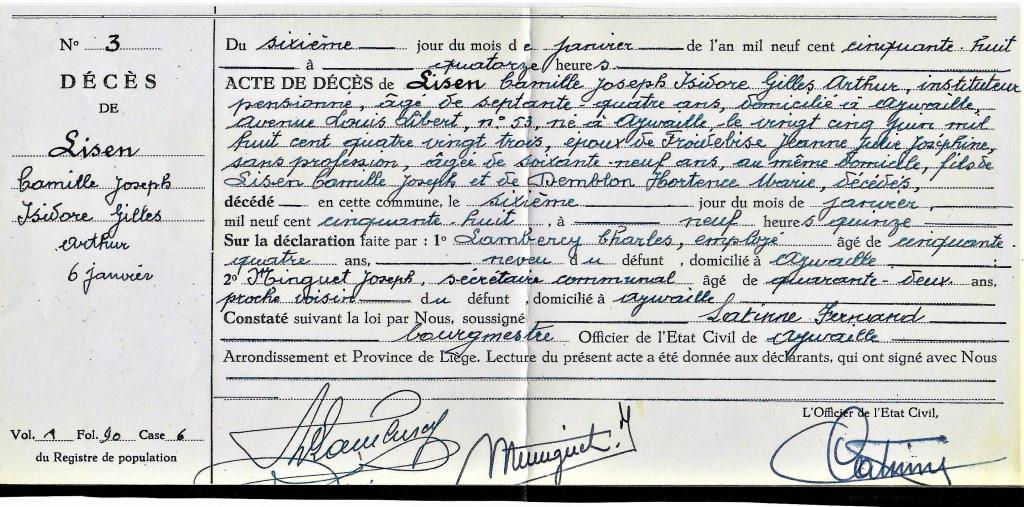 N° 3
DÉCÈS
DE
Lisen
Camille Joseph
Isidore Gilles
Arthur
6 janvier
Vol. 1 Fol. 90 Case 6
du Registre de population
Du sixième jour du mois de janvier de l'an mil neuf cent cinquante-huit
à quatorze heures
ACTE DE DÉCÈS de Lisen Camille Joseph Isidore Gilles Arthur, instituteur
pensionné, âgé de septante quatre ans, domicilié à Aywaille,
avenue Louis Libert, n° 53, né à Aywaille, le vingt cinq juin mil
huit cent quatre vingt trois, époux de Froidebise Jeanne Julie Joséphine,
sans profession, âgée de soixante-neuf ans, au même domicile, fils de
Lisen Camille Joseph et de Demblon Hortence Marie, décédés,
décédé en cette commune, le sixième jour du mois de janvier,
mil neuf cent cinquante-huit, à neuf heures quinze
Sur la déclaration faite par : 1° Lambercy Charles, employé âgé de cinquante-
quatre ans, neveu du défunt, domicilié à Aywaille ;
2° Minguet Joseph, secrétaire communal âgé de quarante-deux ans,
proche voisin du défunt, domicilié à Aywaille
Constaté suivant la loi par Nous, soussigné Satinne Fernand
bourgmestre Officier de l'Etat Civil de Aywaille
Arrondissement et Province de Liége. Lecture du présent acte a été donnée aux déclarants, qui ont signé avec Nous
L'Officier de l'Etat Civil,